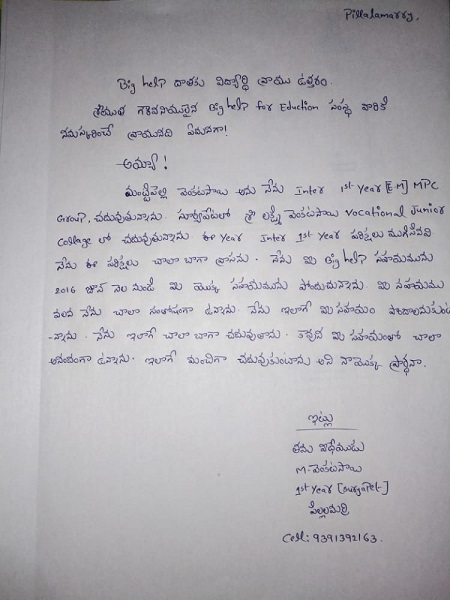 Pillalamarry,
Big help దాతకు విద్యార్థి వ్రాయు ఉత్తరం.
శ్రీయుత గౌరవనీయులైన Big help for Eduction సంస్థ వారికి
నమస్కరించి వ్రాయునది ఏమనగా!
అయ్యా!
వెంకటసాయి అను నేను Inter 1st Year [EM] MPC
Group, చదువుతున్నాను. సూర్యాపేటలో శ్రీ లక్ష్మీ వెంకటసాయి Vocational Junior
Collage లో చదువుతున్నాను. ఈ Year Inter 1st Year పరీక్షలు ముగిసినవి
నేను ఈ పరీక్షలు చాలా బాగా వ్రాసాను. నేను మీ Big help సహాయమును
2016 జూన్ నెల నుండి మీ యొక్క సహాయమును పొందుచున్నాను. మీ సహాయము
వలన నేను చాలా సంతోషంగా ఉన్నాను. నేను ఇలాగే మీ సహాయం పొందాలనుకుంటు
-న్నాను. నేను ఇలాగే చాలా బాగా చదువుతాను. కావున మీ సహాయంతో చాలా
ఆనందంగా ఉన్నాను. ఇలాగే మంచిగా చదువుకుంటాను అని నా యొక్క ప్రార్థనా.
ఇట్లు
తమ విధేయుడు
M. వెంకటసాయి
1st Year [Suryapet]
పిల్లలమర్రి
Cell: 9391392163.